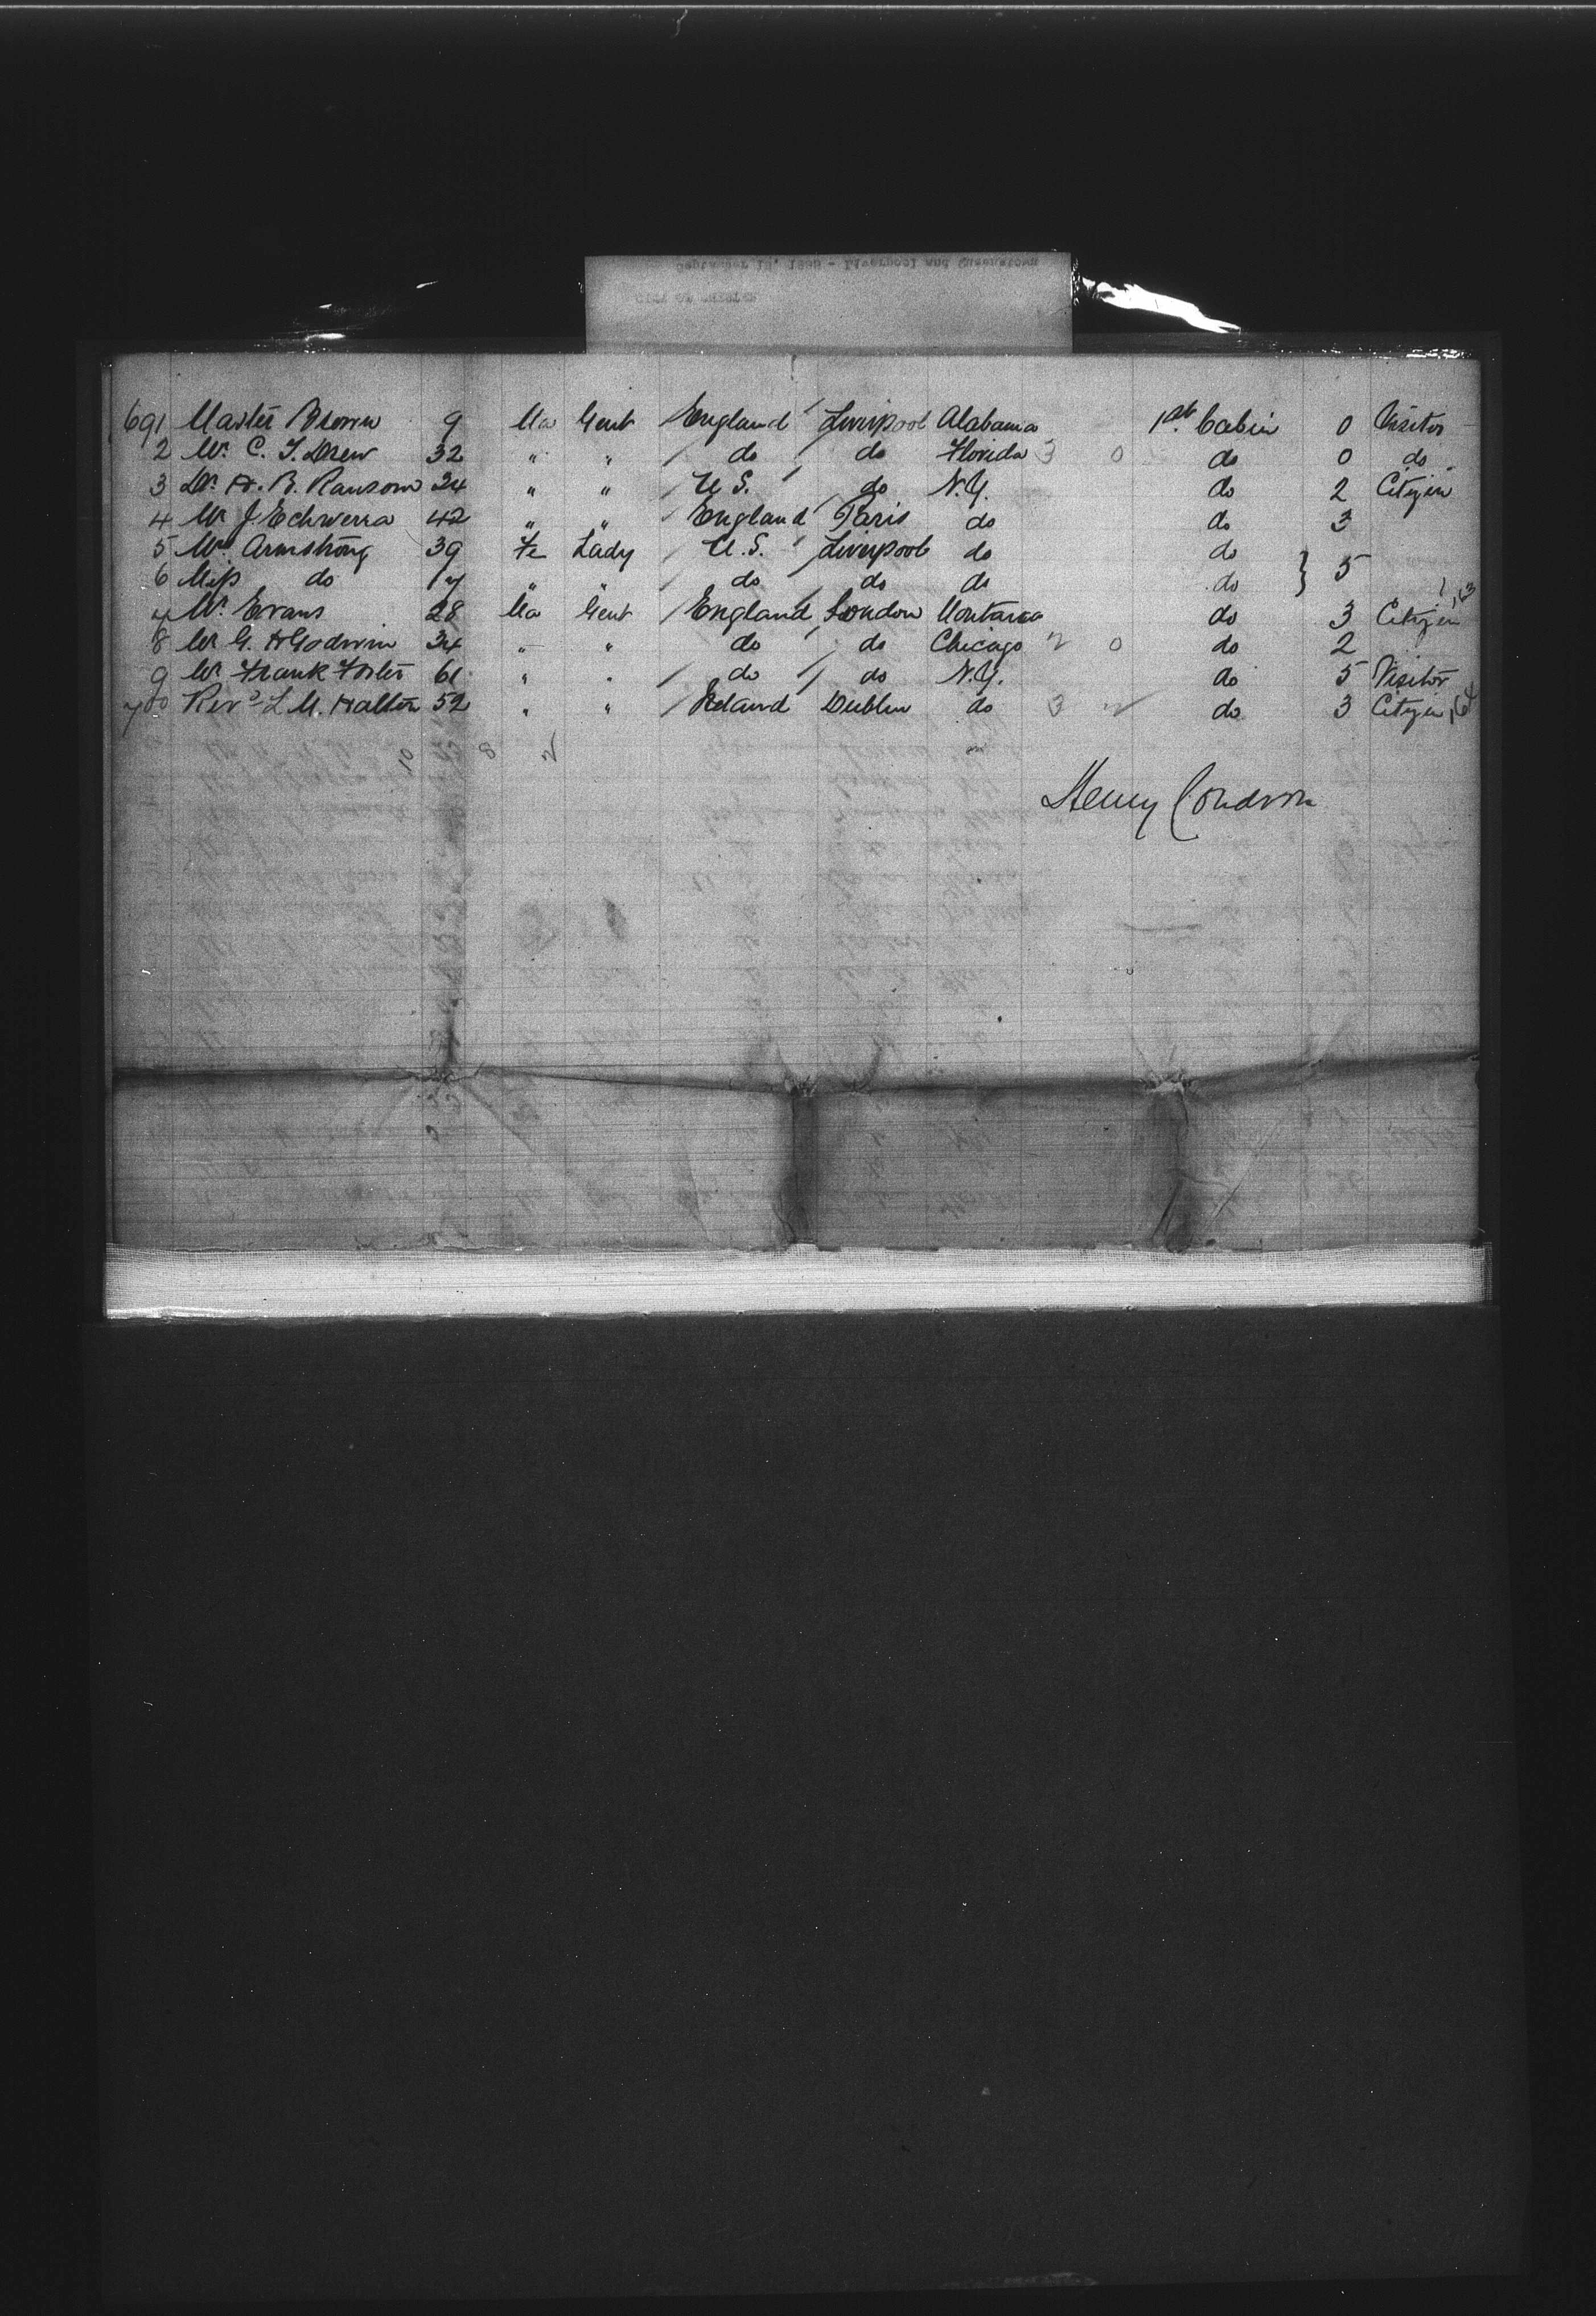 September 12, 1888 - Liverpool and Queenstown
CITY OF CHESTER
691 Master Brown 9 Ma Gent England Liverpool Alabama 1st Cabin 0 Visitor
2 Mr C. T. Drew 32 " " do do Florida 3 0 do 0 do
3 Dr H. B. Ransom 24 " " U S. do N.Y. do 2 Citizen
4 Mr J. Echverra 42 " " England Paris do do 3
5 Mrs Armstrong 39 Fe Lady U.S. Liverpool do do } 5
6 Miss do 17 " " do do do do
7 Mr Evans 28 Ma Gent England London Montana do 3 Citizen 163
8 Mr G. H Godwin 34 " " do do Chicago 2 0 do 2
9 Mr Frank Foster 61 " " do do N.Y. do 5 Visitor
700 Revd L. M. Halton 52 " " Ireland Dublin do 3 do 3 Citizen 164
10 8 2
Henry Condron